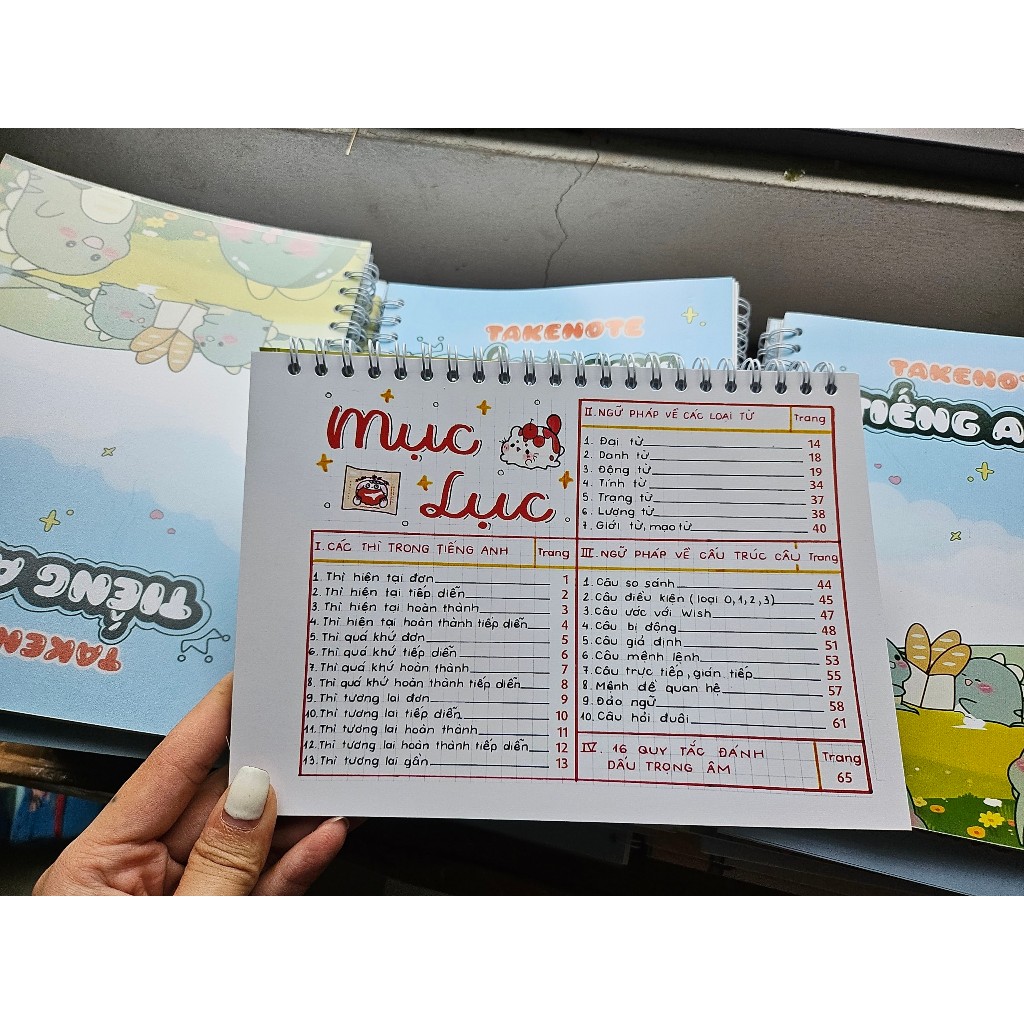 TAKENOTE
TAKENOTE
TIẾNG A
TIẾNG A
TAKEN
Mục
Lục
I. CÁC THÌ TRONG TIẾNG ANH Trang
1. Thì hiện tại đơn 1
2. Thì hiện tại tiếp diễn 2
3. Thì hiện tại hoàn thành 3
4. Thì hiện tại hoàn thành tiếp diễn 4
5. Thì quá khứ đơn 5
6. Thì quá khứ tiếp diễn 6
7. Thì quá khứ hoàn thành 7
8. Thì quá khứ hoàn thành tiếp diễn 8
9. Thì tương lai đơn 9
10. Thì tương lai tiếp diễn 10
11. Thì tương lai hoàn thành 11
12. Thì tương lai hoàn thành tiếp diễn 12
13. Thì tương lai gần 13
II. NGỮ PHÁP VỀ CÁC LOẠI TỪ Trang
1. Đại từ 14
2. Danh từ 18
3. Động từ 19
4. Tính từ 34
5. Trạng từ 37
6. Lượng từ 38
7. Giới từ, mạo từ 40
III. NGỮ PHÁP VỀ CẤU TRÚC CÂU Trang
1. Câu so sánh 44
2. Câu điều kiện (loại 0,1,2,3) 45
3. Câu ước với Wish 47
4. Câu bị động 48
5. Câu giả định 51
6. Câu mệnh lệnh 53
7. Câu trực tiếp, gián tiếp 55
8. Mệnh đề quan hệ 57
9. Đảo ngữ 58
10. Câu hỏi đuôi 61
IV. 16 QUY TẮC ĐÁNH
DẤU TRỌNG ÂM
Trang
65